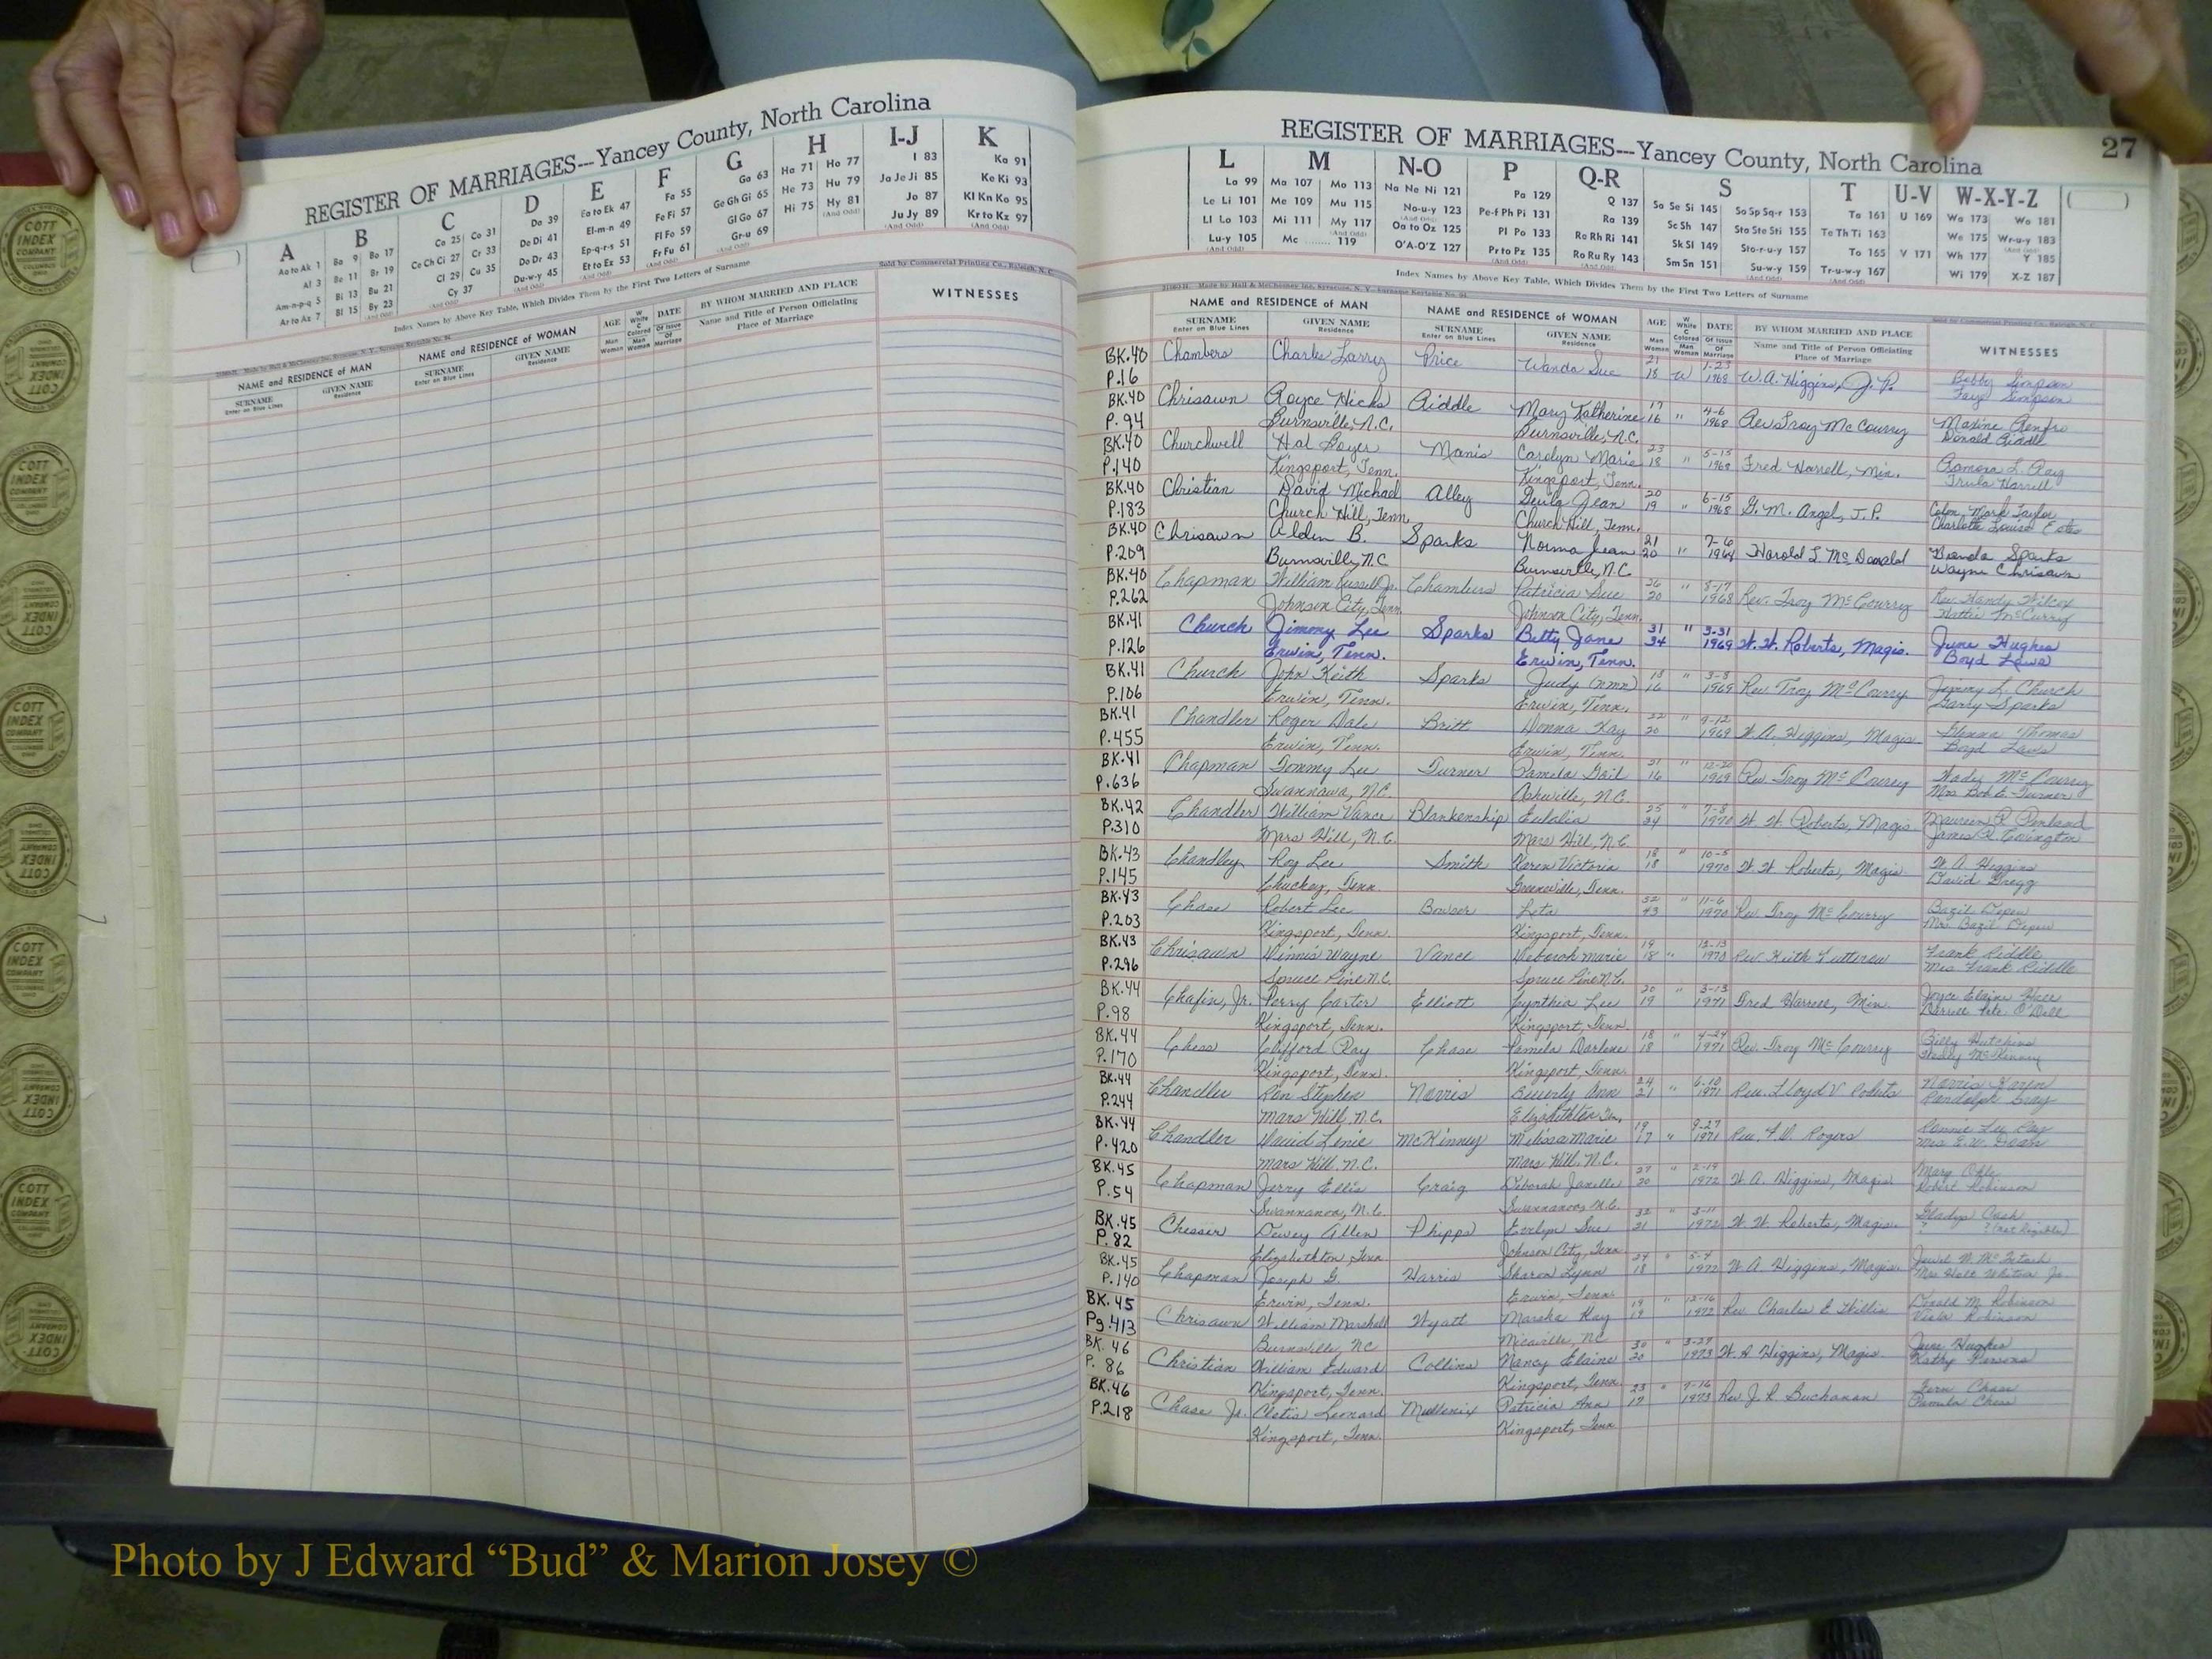 REGISTER OF MARRIAGES---Yancey County, North Carolina
A
Aa to Ak 1
Al 3
Am-n-p-q 5
Ar to Az 7
B
Ba 9
Be 11
Bi 13
Bl 15
Bo 17
Br 19
Bu 21
By 23
(And Odd)
C
Ca 25
Ce Ch Ci 27
Cl 29
Co 31
Cr 33
Cu 35
Cy 37
(And Odd)
D
Da 39
De Di 41
Do Dr 43
Du-w-y 45
(And Odd)
E
Ea to Ek 47
El-m-n 49
Ep-q-r-s 51
Et to Ez 53
(And Odd)
F
Fa 55
Fe Fi 57
Fl Fo 59
Fr Fu 61
(And Odd)
G
Ga 63
Ge Gh Gi 65
Gl Go 67
Gr-u 69
(And Odd)
H
Ha 71
He 73
Hi 75
Ho 77
Hu 79
Hy 81
(And Odd)
I-J
I 83
Ja Je Ji 85
Jo 87
Ju Jy 89
(And Odd)
K
Ka 91
Ke Ki 93
Kl Kn Ko 95
Kr to Kz 97
(And Odd)
Index Names by Above Key Table, Which Divides Them by the First Two Letters of Surname
Sold by Commercial Printing Co., Raleigh, N. C.
NAME and RESIDENCE of MAN
SURNAME
Enter on Blue Lines
GIVEN NAME
Residence
NAME and RESIDENCE of WOMAN
SURNAME
Enter on Blue Lines
GIVEN NAME
Residence
AGE
Man
Woman
W White
C Colored
Man
Woman
DATE
Of Issue
Of Marriage
BY WHOM MARRIED AND PLACE
Name and Title of Person Officiating
Place of Marriage
WITNESSES
REGISTER OF MARRIAGES---Yancey County, North Carolina
27
L
La 99
Le Li 101
Ll Lo 103
Lu-y 105
(And Odd)
M
Ma 107
Me 109
Mi 111
Mc 119
Mo 113
Mu 115
My 117
(And Odd)
N-O
Na Ne Ni 121
No-u-y 123
(And Odd)
Oa to Oz 125
O'A-O'Z 127
P
Pa 129
Pe-f Ph Pi 131
Pl Po 133
Pr to Pz 135
(And Odd)
Q-R
Q 137
Ra 139
Re Rh Ri 141
Ro Ru Ry 143
(And Odd)
S
Sa Se Si 145
Sc Sh 147
Sk Sl 149
Sm Sn 151
So Sp Sq-r 153
Sta Ste Sti 155
Sto-r-u-y 157
Su-w-y 159
(And Odd)
T
Ta 161
Te Th Ti 163
To 165
Tr-u-w-y 167
(And Odd)
U-V
U 169
V 171
W-X-Y-Z
Wa 173
We 175
Wh 177
Wi 179
Wo 181
Wr-u-y 183
(And Odd)
Y 185
X-Z 187
Index Names by Above Key Table, Which Divides Them by the First Two Letters of Surname
NAME and RESIDENCE of MAN
SURNAME
Enter on Blue Lines
GIVEN NAME
Residence
NAME and RESIDENCE of WOMAN
SURNAME
Enter on Blue Lines
GIVEN NAME
Residence
AGE
Man
Woman
W White
C Colored
Man
Woman
DATE
Of Issue
Of Marriage
BY WHOM MARRIED AND PLACE
Name and Title of Person Officiating
Place of Marriage
WITNESSES
BK.40 Chambers Charles Larry Price Wanda Sue 21 1-23 Bobby Simpson
P.16 18 W 1968 W.A. Higgins, J.P. Faye Simpson
BK.40 Chrisawn Royce Hicks Riddle Mary Katherine 17 " 4-6 Maxine Renfro
P.94 Burnsville, N.C. Burnsville, N.C. 16 1968 Rev Troy McCourry Donald Riddle
BK.40 Churchwell Hal Boyer Manis Carolyn Marie 23 " 5-15
P.140 Kingsport, Tenn. Kingsport, Tenn. 18 1968 Fred Harrell, Min. Trula Harrell
BK.40 Christian David Michael Alley Jean 20 " 6-15 Mark Taylor
P.183 Church Hill, Tenn. Church Hill, Tenn. 19 1968 G.M. Angel, J.P. Charlotte Louise Estes
BK.40 Chrisawn Alden B. Sparks Norma Jean 21 " 7-6 Sparks
P.209 Burnsville, N.C Burnsville, N.C. 20 1968 Harold L McDonald Wayne Chrisawn
BK.40 Chapman William Russell Jr. Chambers Patricia Sue 26 8-17 Rev. Wilcox
P.262 Johnson City, Tenn. Johnson City, Tenn. 20 1968 Rev. Troy McCourry Hattie McCurry
BK.41 Church Jimmy Lee Sparks Betty Jane 31 " 3-31 June Hughes
P.126 Erwin, Tenn. Erwin, Tenn. 34 1969 W.W. Roberts, Magis. Boyd Laws
BK.41 Church John Keith Sparks Judy (nmn) 18 " 3-8 Jimmy L. Church
P.106 Erwin, Tenn. Erwin, Tenn. 16 1969 Rev Troy McCourry Garry Sparks
BK.41 Chandler Roger Dale Britt Donna Kay 22 " 9-12 Glenna Thomas
P.455 Erwin, Tenn. Erwin, Tenn. 20 1969 W.A. Higgins, Magis. Boyd Laws
BK.41 Chapman Tommy Lee Turner Pamela Gail 21 " 12-20 McCourry
P.636 Swannanoa, N.C. Asheville, N.C. 16 1969 Rev. Troy McCourry Mrs Bob E. Turner
BK.42 Chandler William Vance Blankenship Eulalia 25 " 7-3 Maureen R Penland
P.310 Mars Hill, N.C. Mars Hill, N.C. 24 1970 W.W. Roberts, Magis. James R Covington
BK.43 Chandley Roy Lee Smith Karen Victoria 18 " 10-5 W.A. Higgins
P.145 Chuckey, Tenn Greeneville, Tenn. 18 1970 W.W. Roberts, Magis. David Gregg
BK.43 Chase Robert Lee Bowser Leta 52 " 11-6 Bazil Depew
P.203 Kingsport, Tenn. Kingsport, Tenn. 43 1970 Rev. Troy McCourry Mrs. Bazil Depew
BK.43 Chrisawn Dennis Wayne Vance Deborah Marie 19 " 12-13 Frank Riddle
P.296 Spruce Pine N.C. Spruce Pine N.C. 18 1970 Rev. Keith Mrs Frank Riddle
BK.44 Chafin, Jr. Perry Carter Elliott Cynthia Lee 20 " 3-13 Joyce Elaine
P.98 Kingsport, Tenn. Kingsport, Tenn 19 1971 Fred Harrell, Min. O'Dell
BK.44 Chess Clifford Ray Chase Pamela Darlene 18 " 4-24 Billy Hutchins
P.170 Kingsport, Tenn. Kingsport, Tenn. 18 1971 Rev. Troy McCourry McKinney
BK.44 Chandler Ron Stephen Norris Beverly Ann 24 " 6-10 Norris Karen
P.244 Mars Hill, N.C. Elizabethton Tn. 21 1971 Rev. Lloyd V Roberts Randolph Gray
BK.44 Chandler David Lenie McKinney Melissa Marie 19 " 9-27 Ronnie Lee Ray
P.420 Mars Hill, N.C. Mars Hill, N.C. 17 1971 Rev. Rogers Mrs E.W. Dean
BK.45 Chapman Jerry Ellis Craig Deborah Janelle 27 " 2-19 Mary
P.54 Swannanoa, N.C. Swannanoa, N.C. 20 1972 W.A. Higgins, Magis Robert Robinson
BK.45 Chesser Dewey Allen Phipps Evelyn Sue 32 " 3-11 Gladys Cash
P.82 Elizabethton Tenn Johnson City, Tenn 21 1972 W.W. Roberts, Magis. ? ? (not legible)
BK.45 Chapman Joseph G. Harris Sharon Lynn 24 " 5-4 Jewel W. McIntosh
P.140 Erwin, Tenn. Erwin, Tenn 18 1972 W A Higgins, Magis.
BK.45 Chrisawn William Marshall Wyatt Marsha Kay 19 " 12-16 Donald M. Robinson
Pg 413 Burnsville, NC Micaville, NC 19 1972 Rev. Charles E Willis Robinson
BK.46 Christian William Edward Collins Nancy Elaine 30 " 3-27 June Hughes
P. 86 Kingsport, Tenn. Kingsport, Tenn. 20 1973 W.A Higgins, Magis Kathy Parsons
BK.46 Chase Jr. Cletis Leonard Mullenix Patricia Ann 23 " 7-16 Chase
P.218 Kingsport, Tenn. Kingsport, Tenn 17 1973 Rev. J.R Buchanan Pamela Chess
COTT INDEX COMPANY COLUMBUS OHIO
Photo by J Edward “Bud” & Marion Josey ©